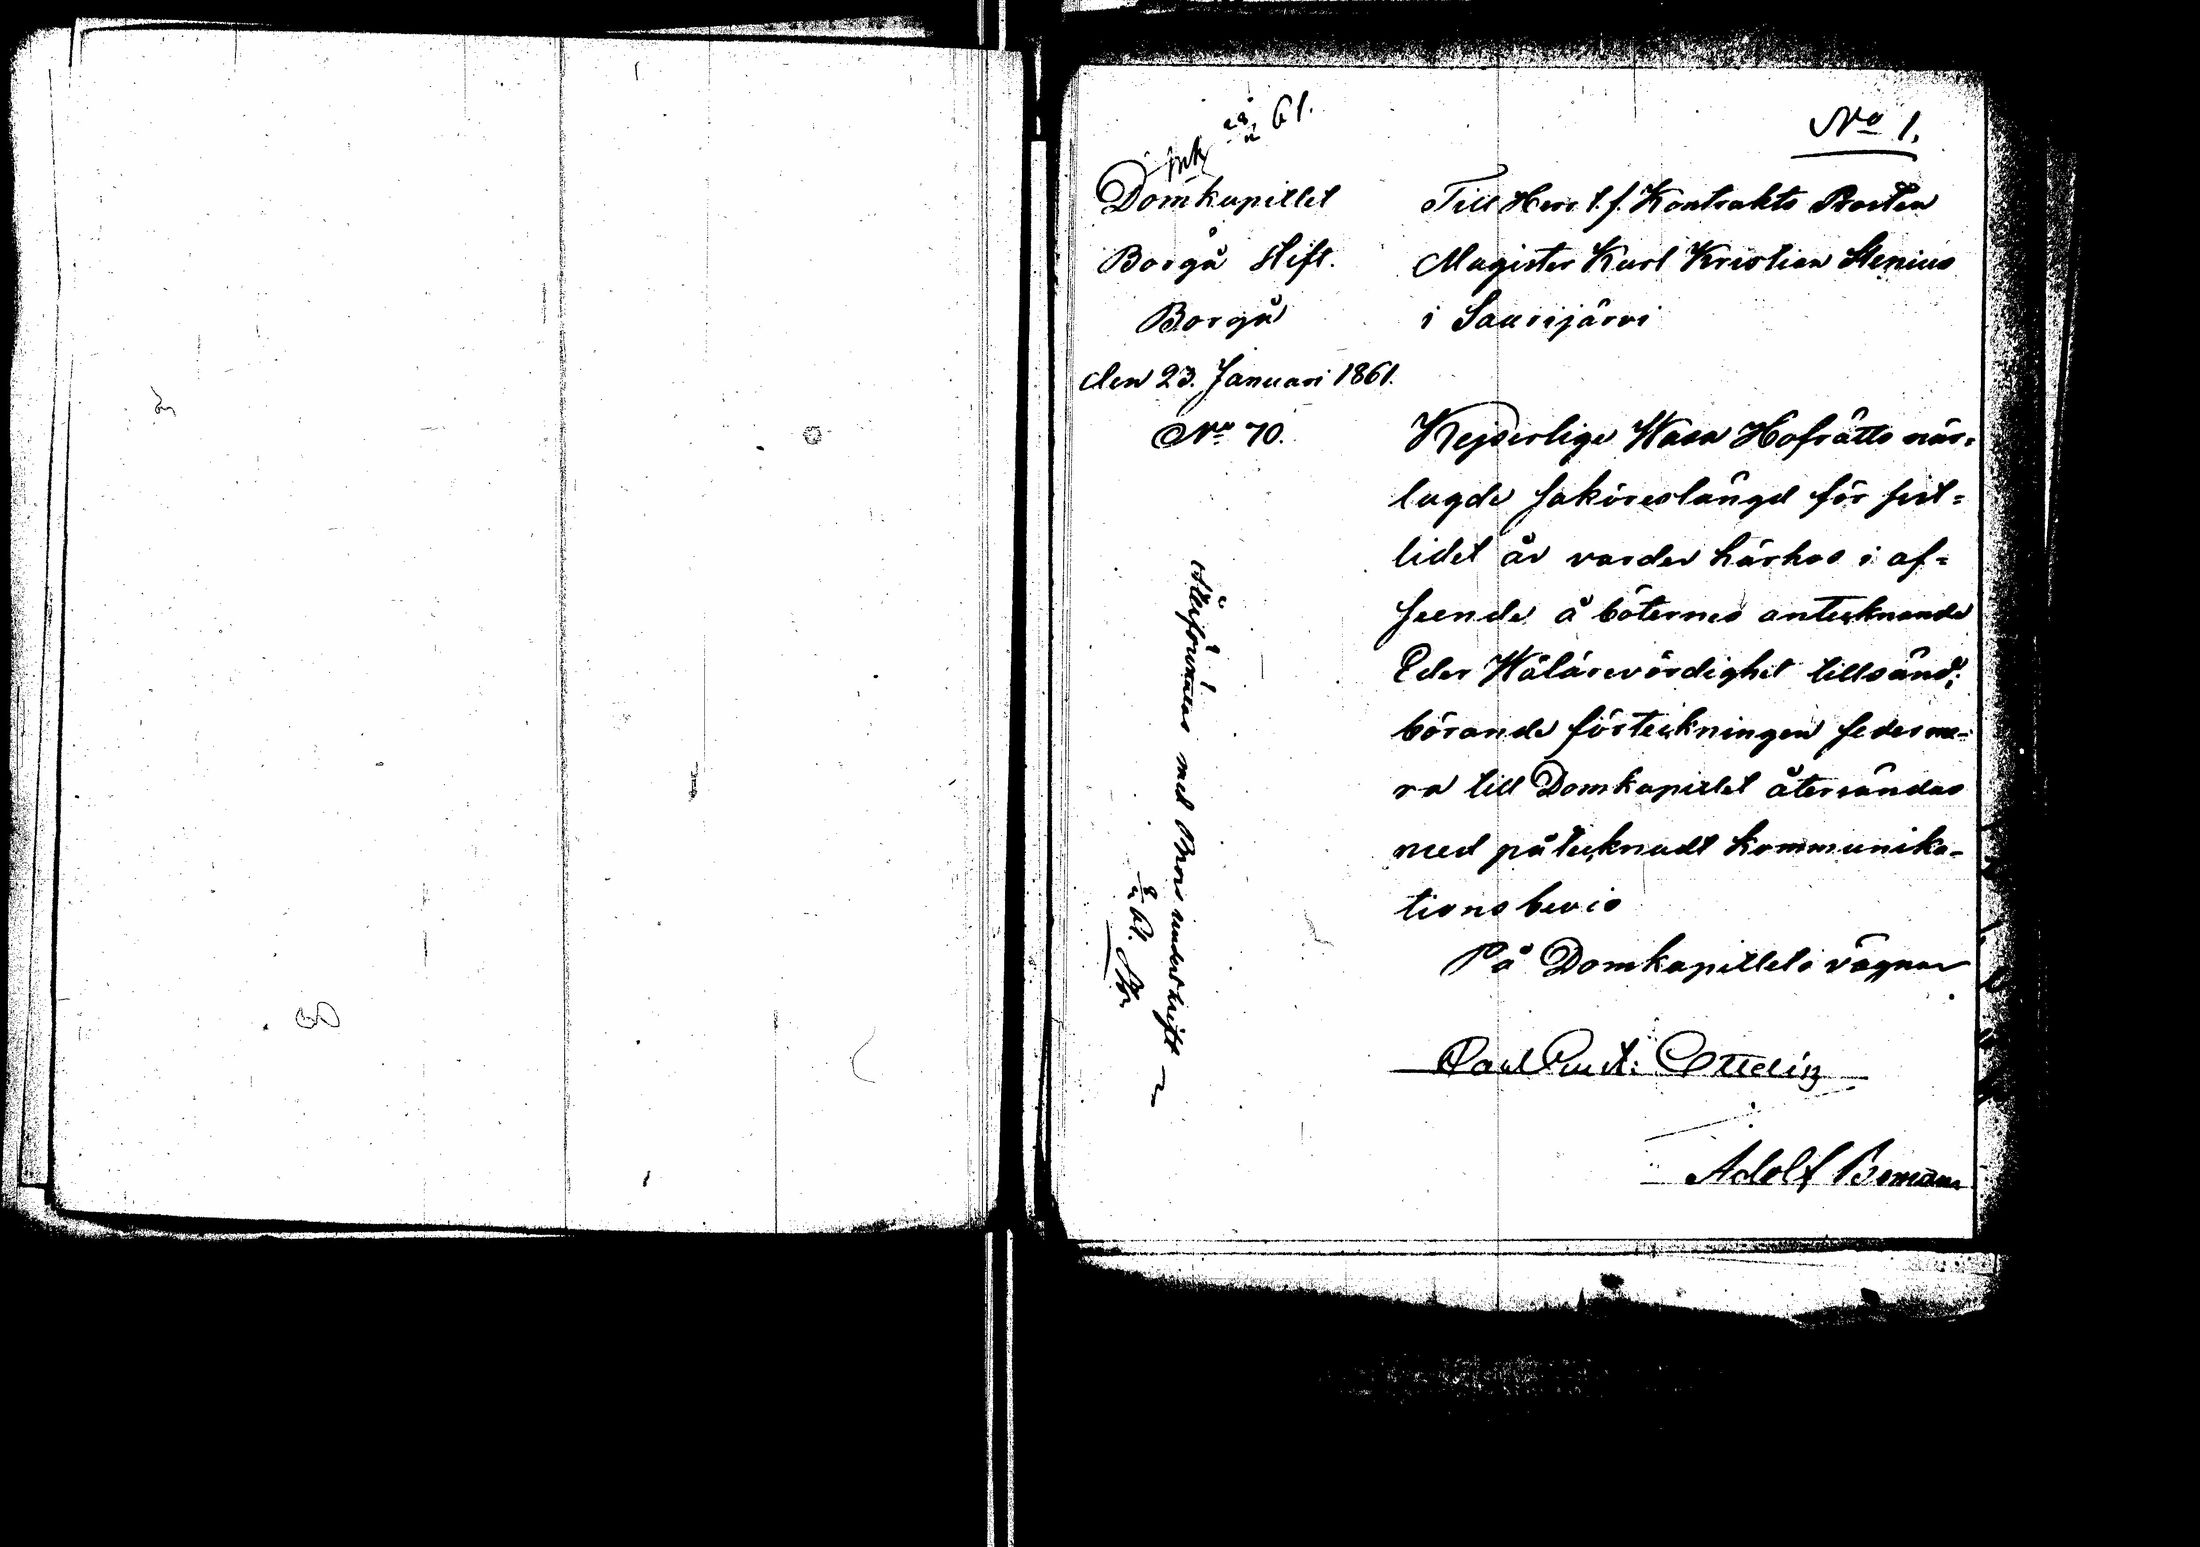 No 1.
ink 61.
Domkapitlet
Borgå Stift.
Borgå
den 23. Januari 1861.
No 70.
Till Herr t. f. Kontrakts Prosten
Magister Karl Kristian Stenius
i Saarijärvi
Kejserliga Wasa Hofrätts när-
lagda saköreslängd för sist-
lidet år varder härhos i af-
seende å böternes antecknande
Eder Wälärevördighet tillsänd;
börande förteckningen sederme-
ra till Domkapitlet återsändas
med påtecknadt kommunika-
tions bevis
På Domkapitlets vägnar
Adolf Boman
Återförvintas med Brors underskrift
61.